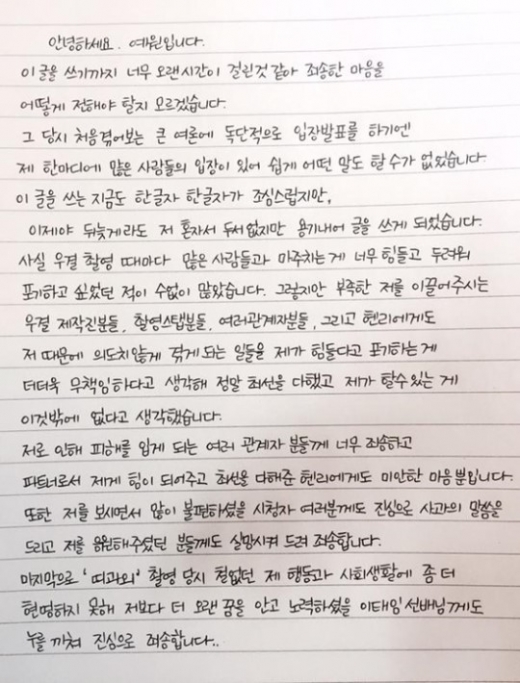 안녕하세요. 예원입니다.
이 글을 쓰기까지 너무 오랜시간이 걸린것 같아 죄송한 마음을
어떻게 전해야 할지 모르겠습니다.
그 당시 처음겪어보는 큰 여론에 독단적으로 입장발표를 하기엔
제 한마디에 많은 사람들의 입장이 있어 쉽게 어떤 말도 할 수가 없었습니다
이 글을 쓰는 지금도 한글자 한글자가 조심스럽지만,
이제야 뒤늦게라도 저 혼자서 두서없지만 용기내어 글을 쓰게 되었습니다.
사실 우결 촬영 때마다 많은 사람들과 마주치는게 너무 힘들고 두려워
포기하고 싶었던 적이 수없이 많았습니다. 그렇지만 부족한 저를 이끌어주시는
우결 제작진분들, 촬영스탭분들, 여러관계자분들, 그리고 헨리에게도
저 때문에 의도치않게 겪게 되는 일들을 제가 힘들다고 포기하는게
더더욱 무책임하다고 생각해 정말 최선을 다했고 제가 할수있는 게
이것밖에 없다고 생각했습니다.
저로 인해 피해를 입게 되는 여러 관계자 분들께 너무 죄송하고
파트너로서 제게 힘이 되어주고 최선을 다해준 헨리에게도 미안한 마음뿐입니다.
또한 저를 보시면서 많이 불편하셨을 시청자 여러분께도 진심으로 사과의 말씀을
드리고 저를 응원해주셨던 분들께도 실망시켜 드려 죄송합니다.
마지막으로 '띠과외' 촬영 당시 철없던 제 행동과 사회생활에 좀 더
현명하지 못해 저보다 더 오랜 꿈을 안고 노력하셨을 이태임선배님께도
누를 끼쳐 진심으로 죄송합니다..